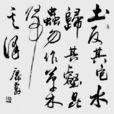 土反其宅水
歸其壑昆
蟲勿作草木
歸其澤